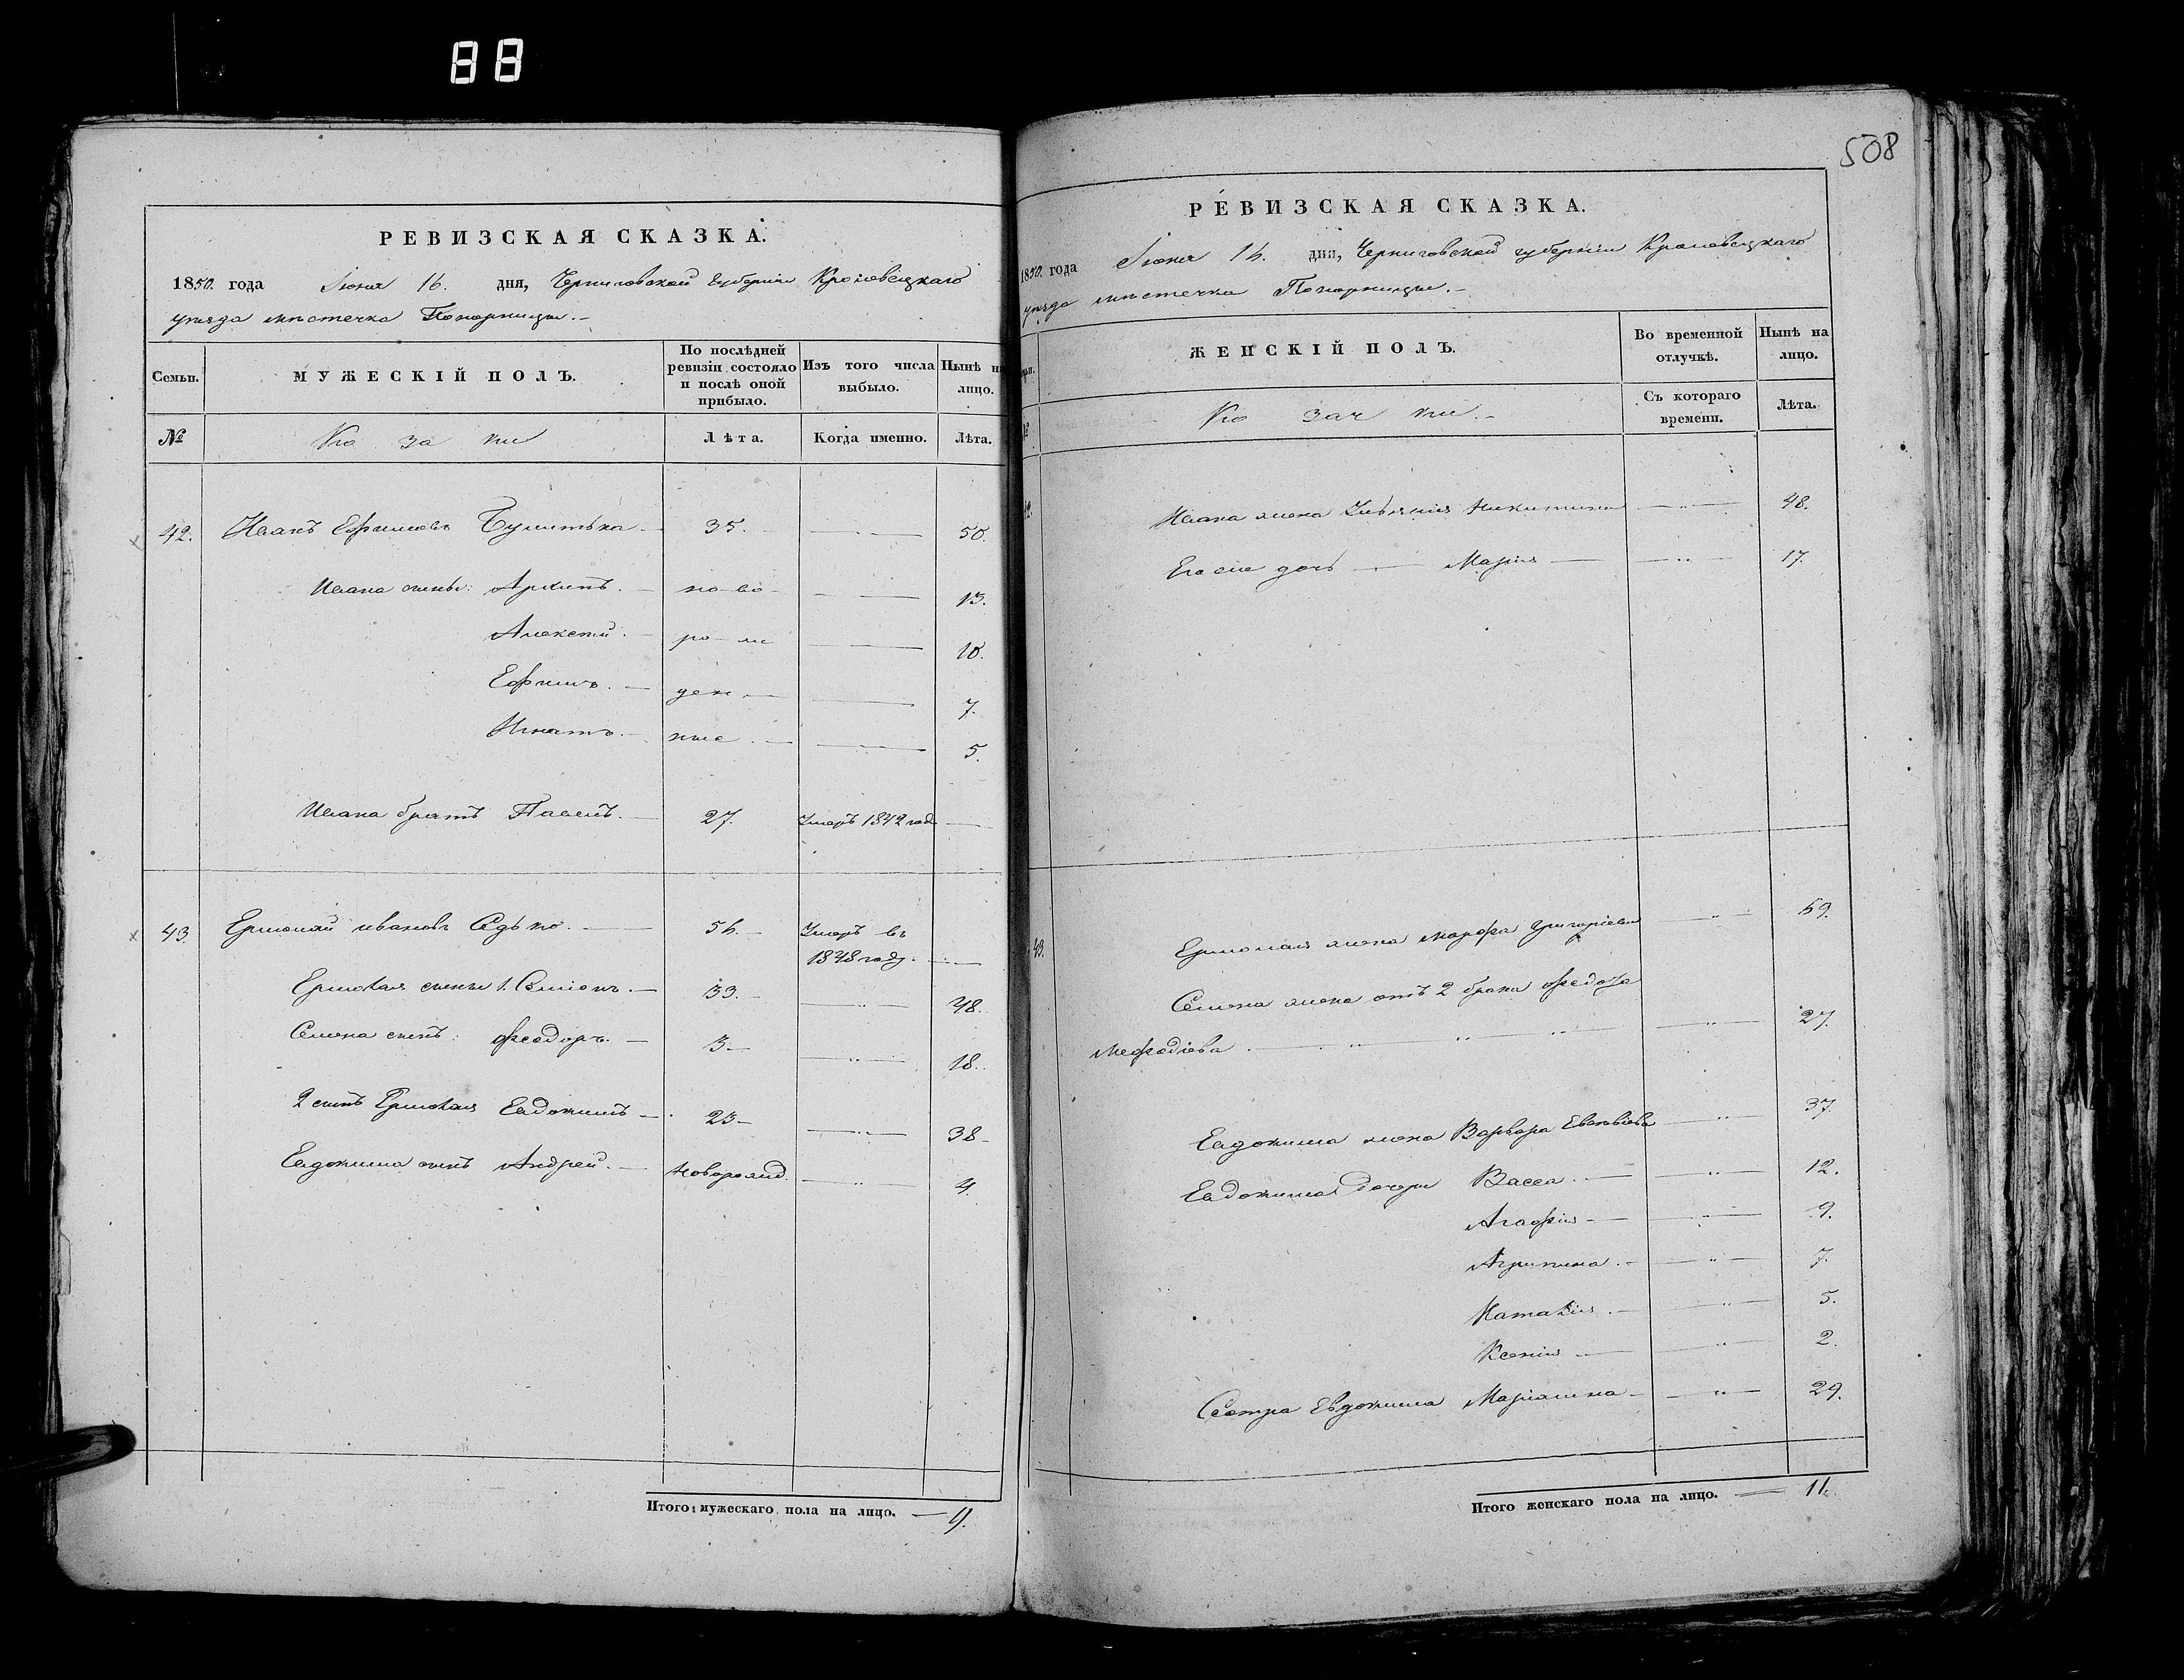 88
508
РЕВИЗСКАЯ СКАЗКА.
1850. года Іюня 16. дня, Черниговской губерніи Кролевецкаго
уѣзда мѣстечка Понорницы.
Семьи.
МУЖЕСКІЙ ПОЛЪ.
По послѣдней ревизіи состояло и послѣ оной прибыло.
Изъ того числа выбыло.
Нынѣ на лицо.
№
Ко за ки
Лѣта.
Когда именно.
Лѣта.
42. Иванъ Ефимовъ 35. 50.
Ивана сыны: Архипъ. но-во- 13.
Алексѣй. ро-ж 10.
Ефимъ. ден 7.
Игнатъ. ные 5.
Ивана братъ Павелъ. 27. Умеръ 1842 год
43. Ермолай Ивановъ Седько. 56. Умеръ въ
1848 году.
Ермолая сыны 1. Семіонъ. 33. 48.
Семена сынъ: Феодоръ. 3 18.
2 сынъ Ермолая Евдокимъ 23 38
Евдокима сынъ Андрей. Новорожд. 4.
Итого мужескаго пола на лицо. 9.
РЕВИЗСКАЯ СКАЗКА.
1850. года Іюня 16. дня, Черниговской губерніи Кролевецкаго
уѣзда мѣстечка Понорницы.
ЖЕНСКІЙ ПОЛЪ.
Во временной отлучкѣ.
Нынѣ на лицо.
Ко зач ки.
Съ котораго времени.
Лѣта.
Ивана жена Ульянія Никитина 48.
Его же дочь Марія 17.
43. Ермолая жена Марфа Григоріева 69.
Семена жена отъ 2 брака Федора
Мефодіева 27.
Евдокима жена Варвара 37.
Евдокима дочери Васса. 12.
Агафія 9.
Агрипина. 7.
Наталія. 5.
Ксенія 2.
Сестра Евдокима Маріанна 29.
Итого женскаго пола на лицо. 11.